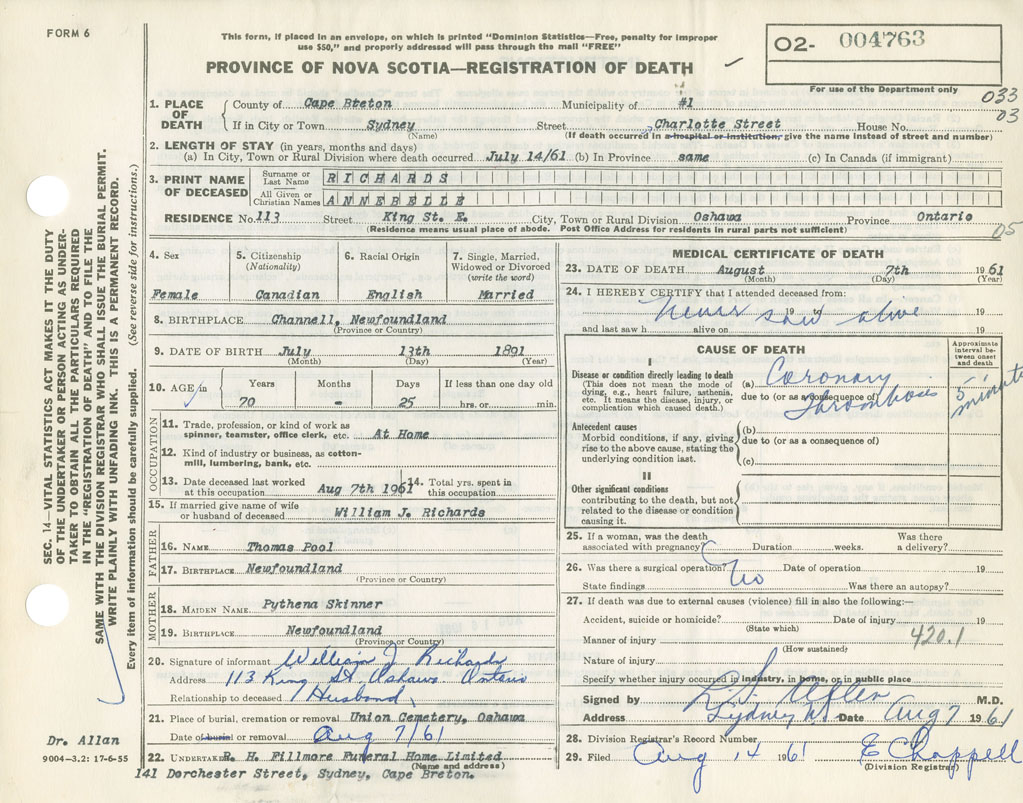 FORM 6
This form, if placed in an envelope, on which is printed "Dominion Statistics—Free, penalty for improper
use $50," and properly addressed will pass through the mail "FREE"
PROVINCE OF NOVA SCOTIA—REGISTRATION OF DEATH
02- 004763
For use of the Department only
033
03
1. PLACE OF DEATH County of Cape Breton Municipality of #1
If in City or Town Sydney Street Charlotte Street House No.
(Name) (If death occurred in a hospital or institution, give the name instead of street and number)
2. LENGTH OF STAY (in years, months and days)
(a) In City, Town or Rural Division where death occurred July 14/61 (b) In Province same (c) In Canada (if immigrant)
3. PRINT NAME OF DECEASED Surname or Last Name RICHARDS
All Given or Christian Names ANNEBELLE
RESIDENCE No. 113 Street King St. E. City, Town or Rural Division Oshawa Province Ontario
05
(Residence means usual place of abode. Post Office Address for residents in rural parts not sufficient)
4. Sex Female
5. Citizenship (Nationality) Canadian
6. Racial Origin English
7. Single, Married, Widowed or Divorced (write the word) Married
8. BIRTHPLACE Channell, Newfoundland
(Province or Country)
9. DATE OF BIRTH July 13th 1891
(Month) (Day) (Year)
10. AGE in Years Months Days If less than one day old
70 - 25 hrs. or min.
OCCUPATION
11. Trade, profession, or kind of work as
spinner, teamster, office clerk, etc. At Home
12. Kind of industry or business, as cotton-
mill, lumbering, bank, etc.
13. Date deceased last worked at this occupation Aug 7th 1961
14. Total yrs. spent in this occupation
15. If married give name of wife
or husband of deceased William J. Richards
FATHER
16. NAME Thomas Pool
17. BIRTHPLACE Newfoundland
(Province or Country)
MOTHER
18. MAIDEN NAME Pythena Skinner
19. BIRTHPLACE Newfoundland
(Province or Country)
20. Signature of informant William J. Richards
Address 113 King St Oshawa Ontario
Relationship to deceased Husband
21. Place of burial, cremation or removal Union Cemetery, Oshawa
Date of burial or removal Aug 7/61
22. UNDERTAKER R. H. Fillmore Funeral Home Limited
(Name and address)
141 Dorchester Street, Sydney, Cape Breton.
MEDICAL CERTIFICATE OF DEATH
23. DATE OF DEATH August 7th 1961
(Month) (Day) (Year)
24. I HEREBY CERTIFY that I attended deceased from:
19 to 19
Never saw alive
and last saw h alive on 19
CAUSE OF DEATH
Approximate interval between onset and death
I
Disease or condition directly leading to death
(This does not mean the mode of
dying, e.g., heart failure, asthenia,
etc. It means the disease, injury, or
complication which caused death.)
(a) Coronary
due to (or as a consequence of)
Thrombosis
5 minute
Antecedent causes
Morbid conditions, if any, giving
rise to the above cause, stating the
underlying condition last.
(b)
due to (or as a consequence of)
(c)
II
Other significant conditions
contributing to the death, but not
related to the disease or condition
causing it.
25. If a woman, was the death Was there
associated with pregnancy? Duration weeks. a delivery?
26. Was there a surgical operation? No Date of operation 19
State findings Was there an autopsy?
27. If death was due to external causes (violence) fill in also the following:—
Accident, suicide or homicide? Date of injury 19
(State which)
420.1
Manner of injury
(How sustained)
Nature of injury
Specify whether injury occurred in industry, in home, or in public place
Signed by M.D.
Address Sydney Date Aug 7 1961
28. Division Registrar's Record Number
29. Filed Aug 14 1961 E Chappell
(Division Registrar)
SEC. 14—VITAL STATISTICS ACT MAKES IT THE DUTY
OF THE UNDERTAKER OR PERSON ACTING AS UNDER-
TAKER TO OBTAIN ALL THE PARTICULARS REQUIRED
IN THE "REGISTRATION OF DEATH" AND TO FILE THE
SAME WITH THE DIVISION REGISTRAR WHO SHALL ISSUE THE BURIAL PERMIT.
WRITE PLAINLY WITH UNFADING INK. THIS IS A PERMANENT RECORD.
Every item of information should be carefully supplied. (See reverse side for instructions.)
Dr. Allan
9004—3.2: 17-6-55